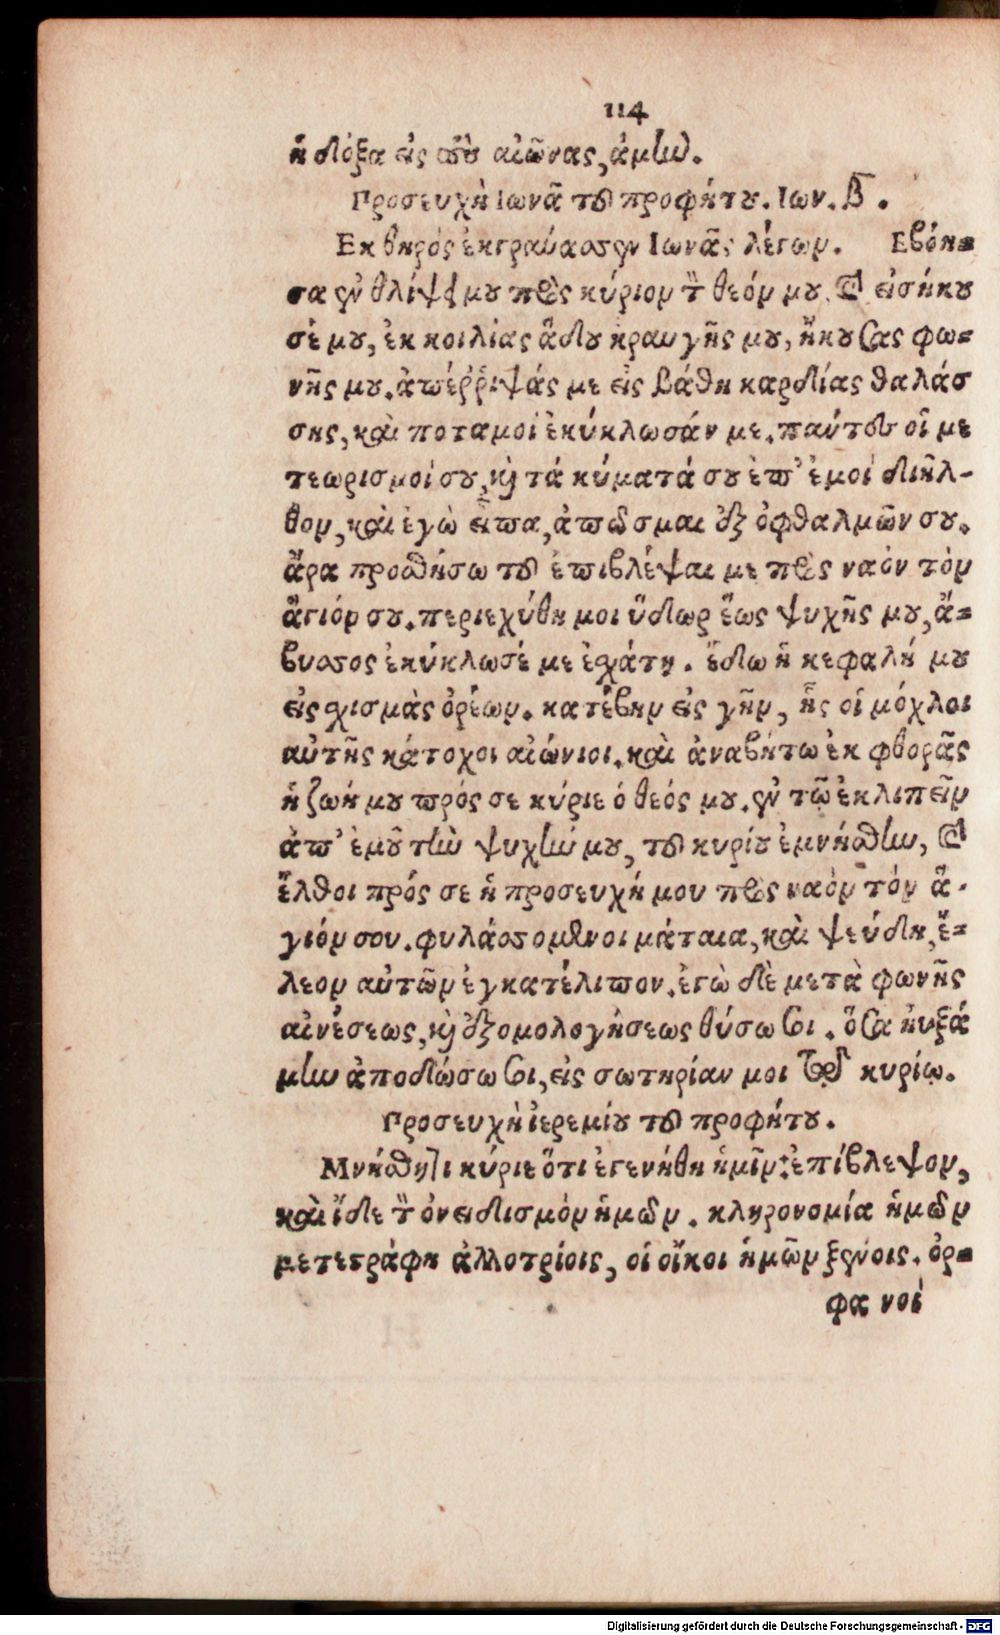 114
ἡ δόξα εἰς τοὺς αἰῶνας, ἀμήν.
Προσευχὴ Ιωνᾶ τοῦ προφήτου. Ιων. β̅.
Εκ θηρός ἐκραύασεν Ιωνᾶς λέγων. Εβόη=
σα ἐν θλίψει μου πρὸς κύριον τὸν θεόν μου, καὶ εἰσήκου
σέ μου, ἐκ κοιλίας ᾅδου κραυγῆς μου, ἤκουσας φω=
νῆς μου. ἀπέῤῥιψάς με εἰς βάθη καρδίας θαλάσ
σης, καὶ ποταμοί ἐκύκλωσάν με. πάντες οἱ με
τεωρισμοί σου, καὶ τά κύματά σου ἐπ' ἐμοί διῆλ-
θον, καὶ ἐγὼ εἶπα, ἀπῶσμαι ἐξ ὀφθαλμῶν σου.
ἆρα προσθήσω τοῦ ἐπιβλέψαι με πρὸς ναόν τὸν
ἅγιόν σου. περιεχύθη μοι ὕδωρ ἕως ψυχῆς μου, ἄ=
βυσσος ἐκύκλωσέ με ἐσχάτη. ἔδω ἡ κεφαλή μου
εἰς σχισμὰς ὀρέων. κατέβην εἰς γῆν, ἧς οἱ μόχλοι
αὐτῆς κάτοχοι αἰώνιοι. καὶ ἀναβήτω ἐκ φθορᾶς
ἡ ζωή μου πρός σε κύριε ὁ θεός μου. ἐν τῷ ἐκλιπεῖν
ἀπ' ἐμοῦ τὴν ψυχήν μου, τοῦ κυρίου ἐμνήσθην, καὶ
ἔλθοι πρός σε ἡ προσευχή μου πρὸς ναὸν τόν ἅ-
γιόν σου. φυλάσσομενοι μάταια, καὶ ψεύδη, ἔ=
λεον αὐτῶν ἐγκατέλιπον. ἐγὼ δὲ μετὰ φωνῆς
αἰνέσεως, καὶ ἐξομολογήσεως θύσω σοι. ὅσα ηὐξά
μην ἀποδώσω σοι, εἰς σωτηρίαν μοι τῷ κυρίῳ.
Προσευχὴ ἱερεμίου τοῦ προφήτου.
Μνήσθητι κύριε ὅτι ἐγενήθη ἡμῖν: ἐπίβλεψον,
καὶ ἴδε τὸν ὀνειδισμόν ἡμῶν. κληρονομία ἡμῶν
μετεστράφη ἀλλοτρίοις, οἱ οἶκοι ἡμῶν ξένοις. ὀρ=
φα νοί
Digitalisierung gefördert durch die Deutsche Forschungsgemeinschaft - DFG